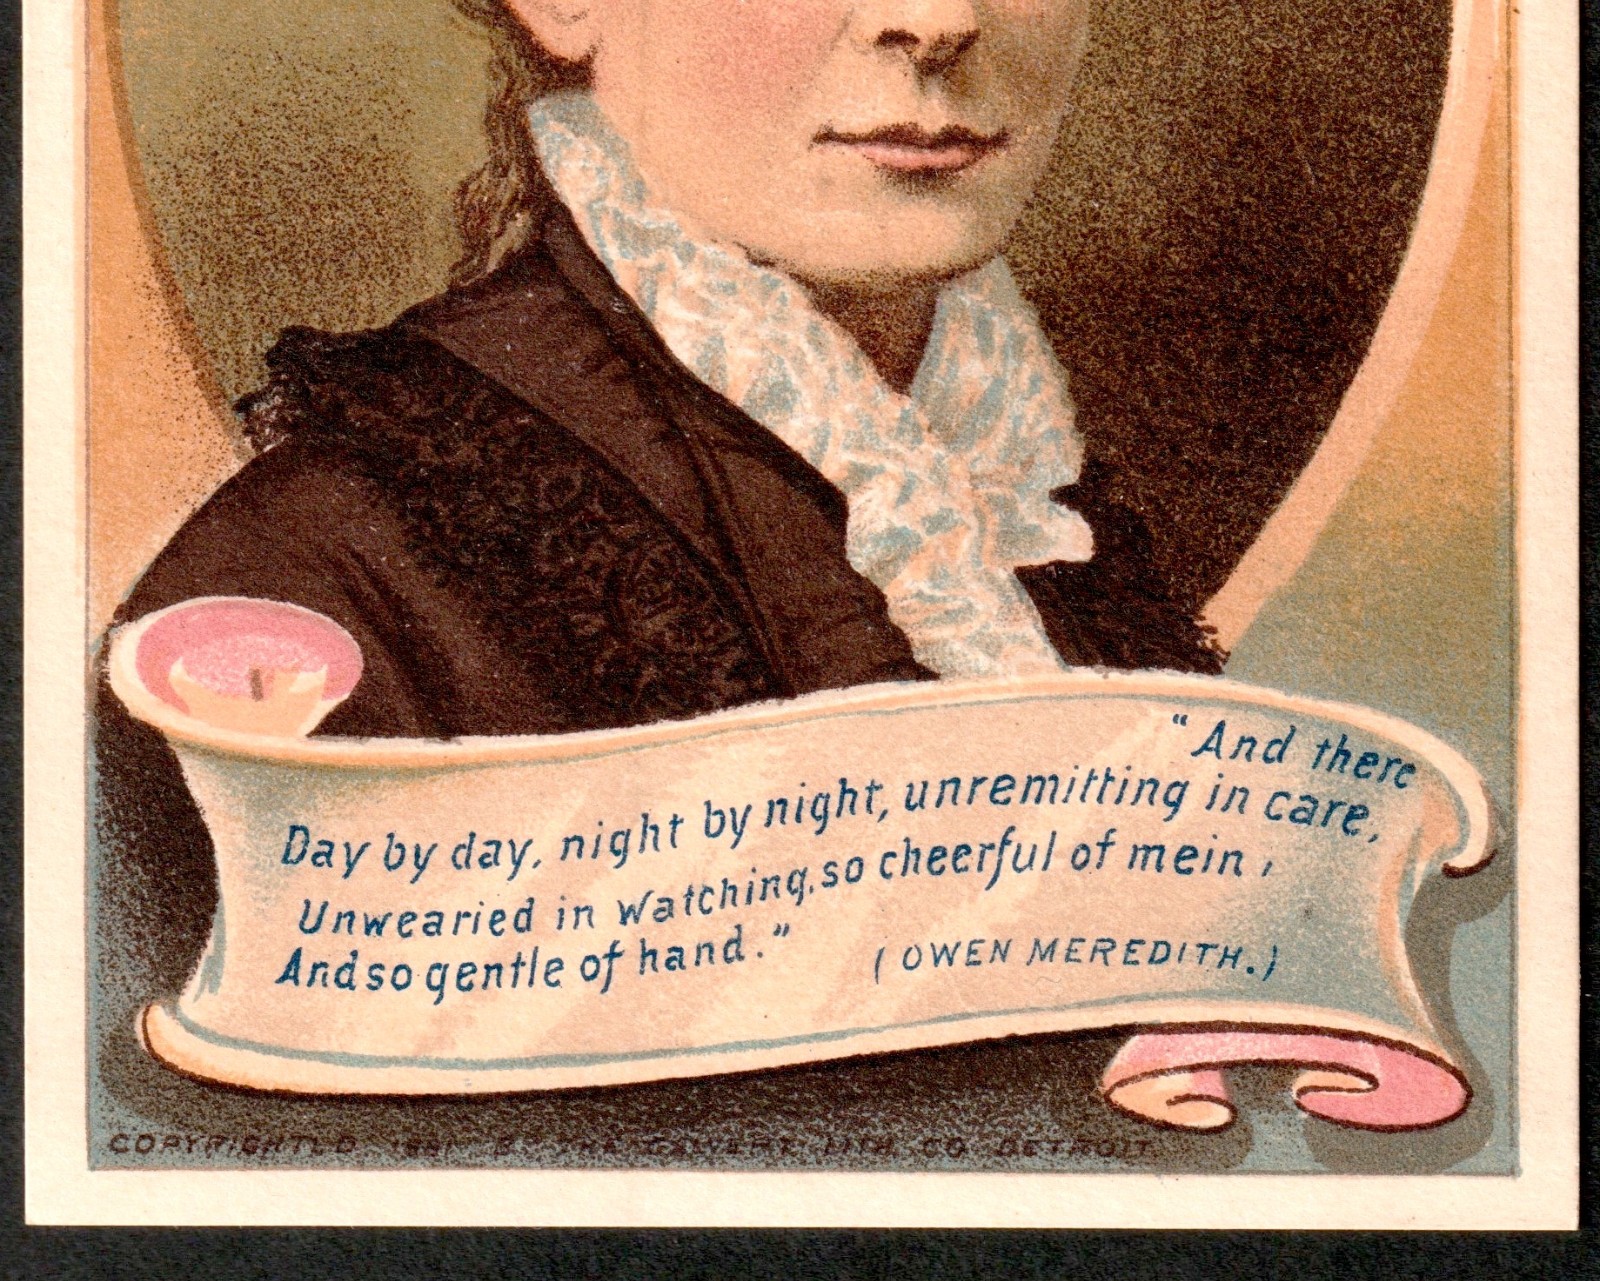 "And there
Day by day, night by night, unremitting in care,
Unwearied in watching, so cheerful of mein,
And so gentle of hand."
(OWEN MEREDITH.)
COPYRIGHTED 1881 BY THE CALVERT LITH. CO. DETROIT.